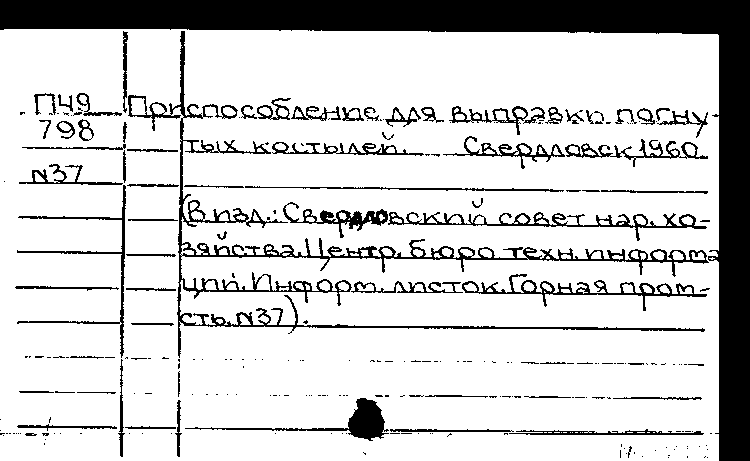 П49 Приспособление для выправки погну-
798 тых костылей. Свердловск, 1960.
N37
(В изд.: Свердловский совет нар. хо-
зяйства. Центр. бюро техн. информа
ции. Информ. листок. Горная пром-
сть. N37).